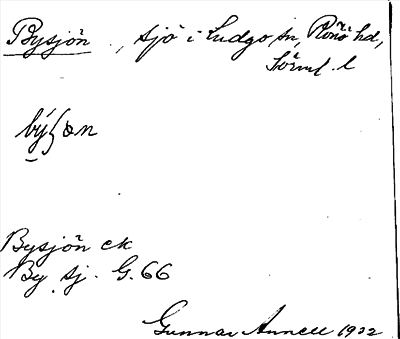 Bysjön, sjö i Ludgo sn, Rönö hd,
Sörml. l
býʃɵn
Bysjön ek
By sj. G. 66
Gunnar Annell 1932